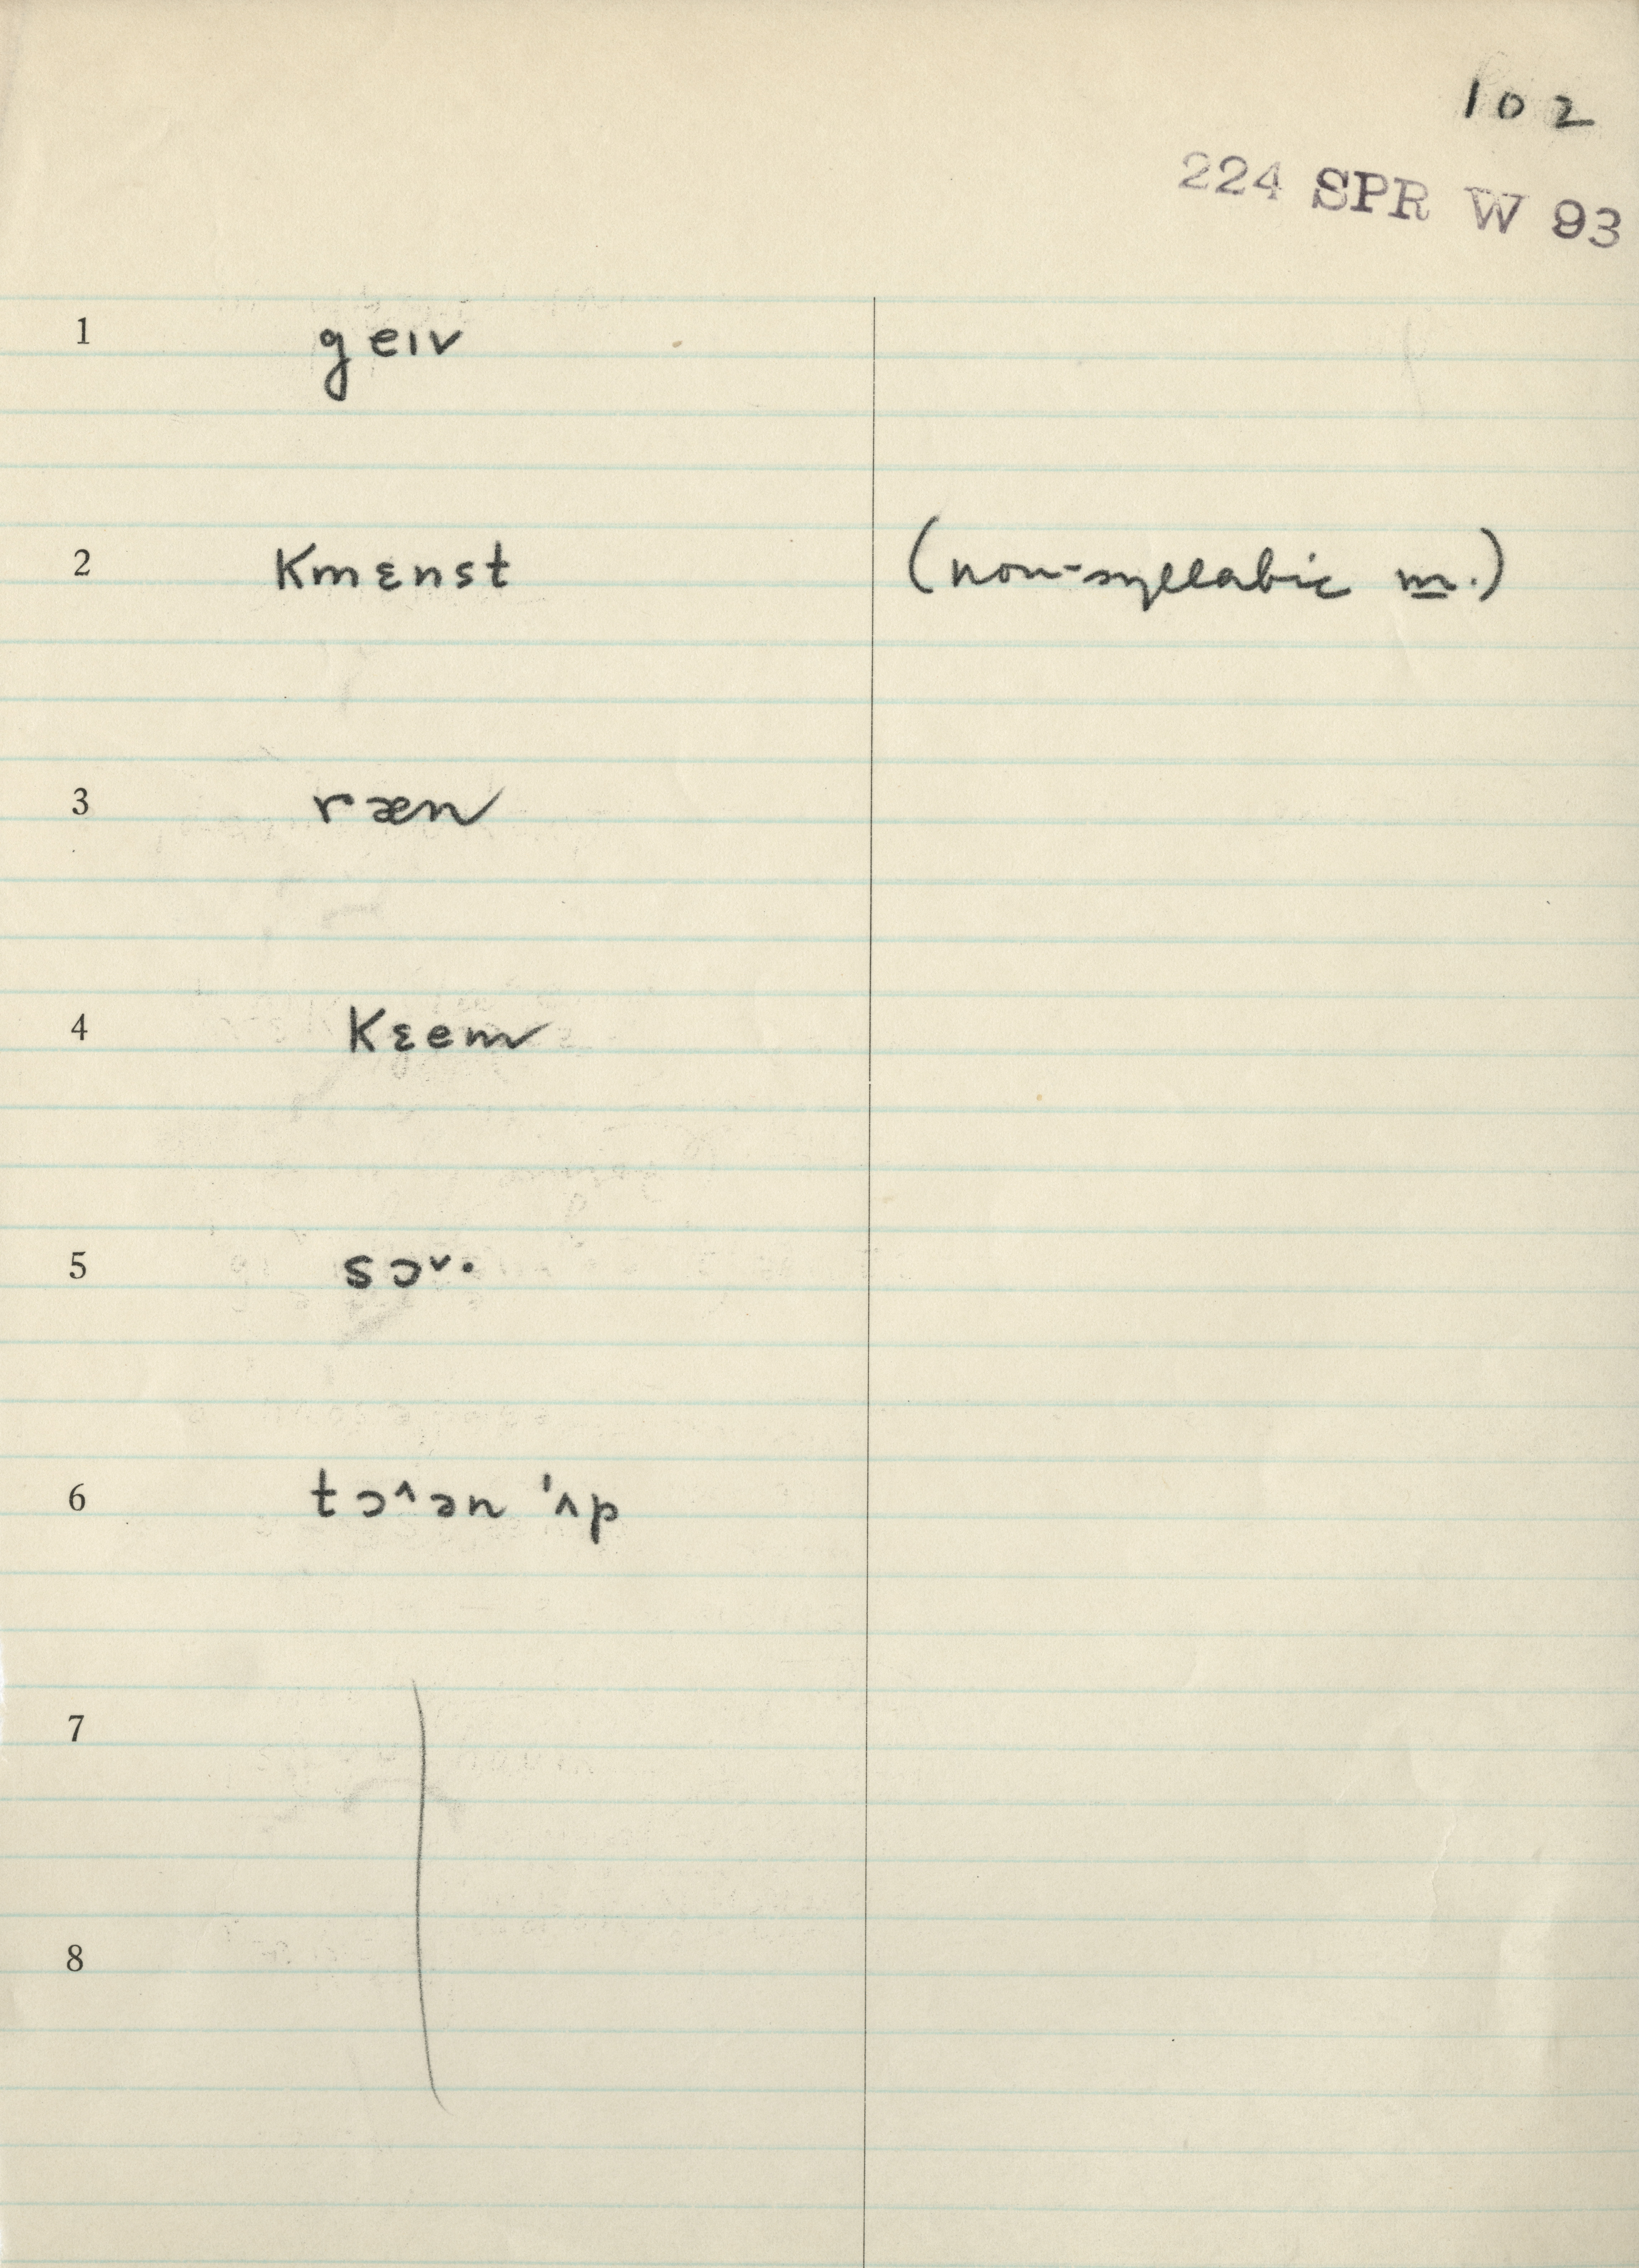 102
224 SPR W 93
1 geıv
2 Kmɛnst (non-syllabic m.)
3 ræn
4 Kɛem
5 sɔ˅·
6 tɔ^ən 'ʌp
7
8